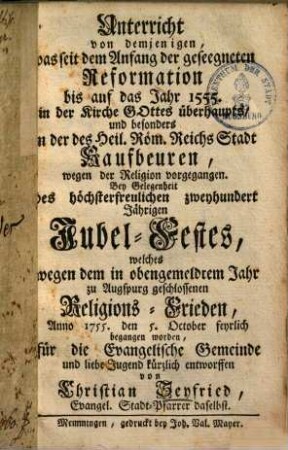 Unterricht
von demjenigen,
was seit dem Anfang der geseegneten
Reformation
bis auf das Jahr 1555.
in der Kirche GOttes überhaupts/
und besonders
in der des Heil. Röm. Reichs Stadt
Kaufbeuren,
wegen der Religion vorgegangen.
Bey Gelegenheit
des höchsterfreulichen zweyhundert
Jährigen
Jubel-Festes,
welches
wegen dem in obengemeldtem Jahr
zu Augspurg geschlossenen
Religions-Frieden,
Anno 1755. den 5. October feyrlich
begangen worden,
für die Evangelische Gemeinde
und liebe Jugend kürzlich entworffen
von
Christian Seyfried,
Evangel. Stadt-Pfarrer daselbst.
Memmingen, gedruckt bey Joh. Val. Mayer.